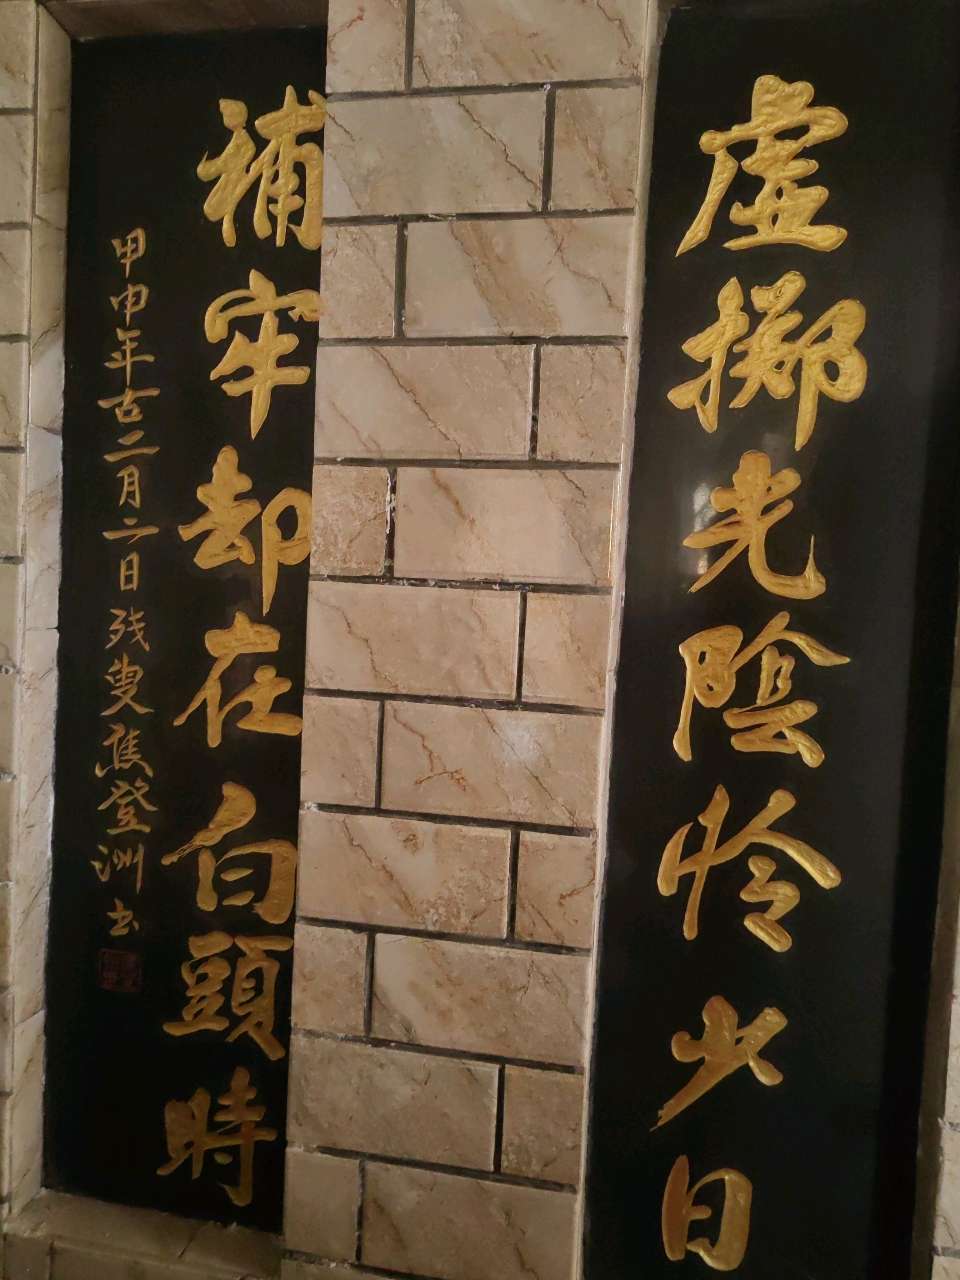 虚掷光陰怜少日
補牢却在白頭時
甲申年古二月二日残叟焦登洲书